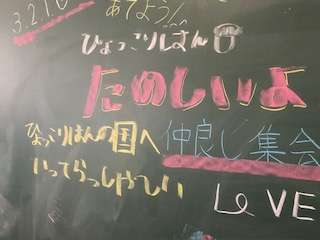 3.2.1
あてよう!
ひょっこりはん
たのしいよ
ひょっこりはんの国へ
仲良し集会
いってらっしゃーい
LOVE